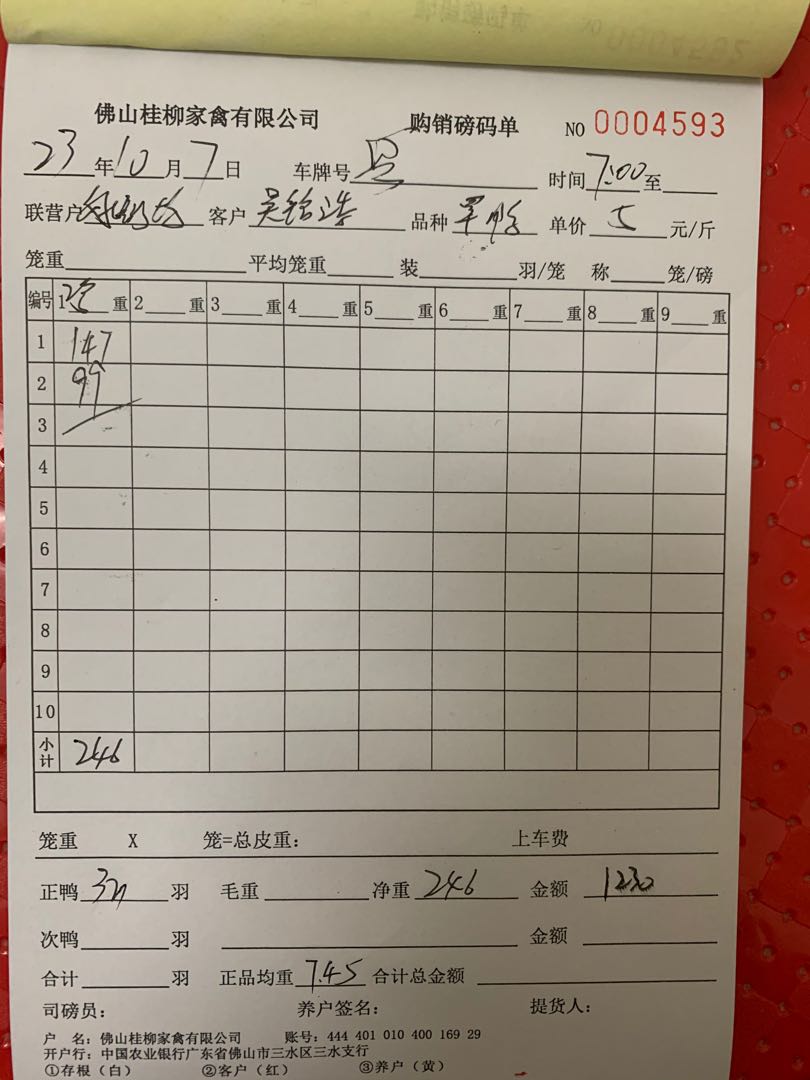 佛山桂柳家禽有限公司 购销磅码单 NO 0004593
23 年 10 月 7 日 车牌号 时间 7:00 至
联营户 客户 吴铭浩 品种 单价 5 元/斤
笼重 平均笼重 装 羽/笼 称 笼/磅
编号 1 重 2 重 3 重 4 重 5 重 6 重 7 重 8 重 9 重
1 147
2 99
3
4
5
6
7
8
9
10
小计 246
笼重 X 笼=总皮重: 上车费
正鸭 羽 毛重 净重 246 金额 1230
次鸭 羽 金额
合计 羽 正品均重 7.45 合计总金额
司磅员: 养户签名: 提货人:
户 名: 佛山桂柳家禽有限公司 账号: 444 401 010 400 169 29
开户行: 中国农业银行广东省佛山市三水区三水支行
①存根(白) ②客户(红) ③养户(黄)